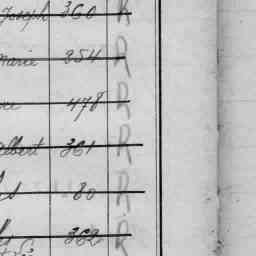 Joseph 360 R
Marie 354 R
478 R
Albert 361 R
80 R
362 R